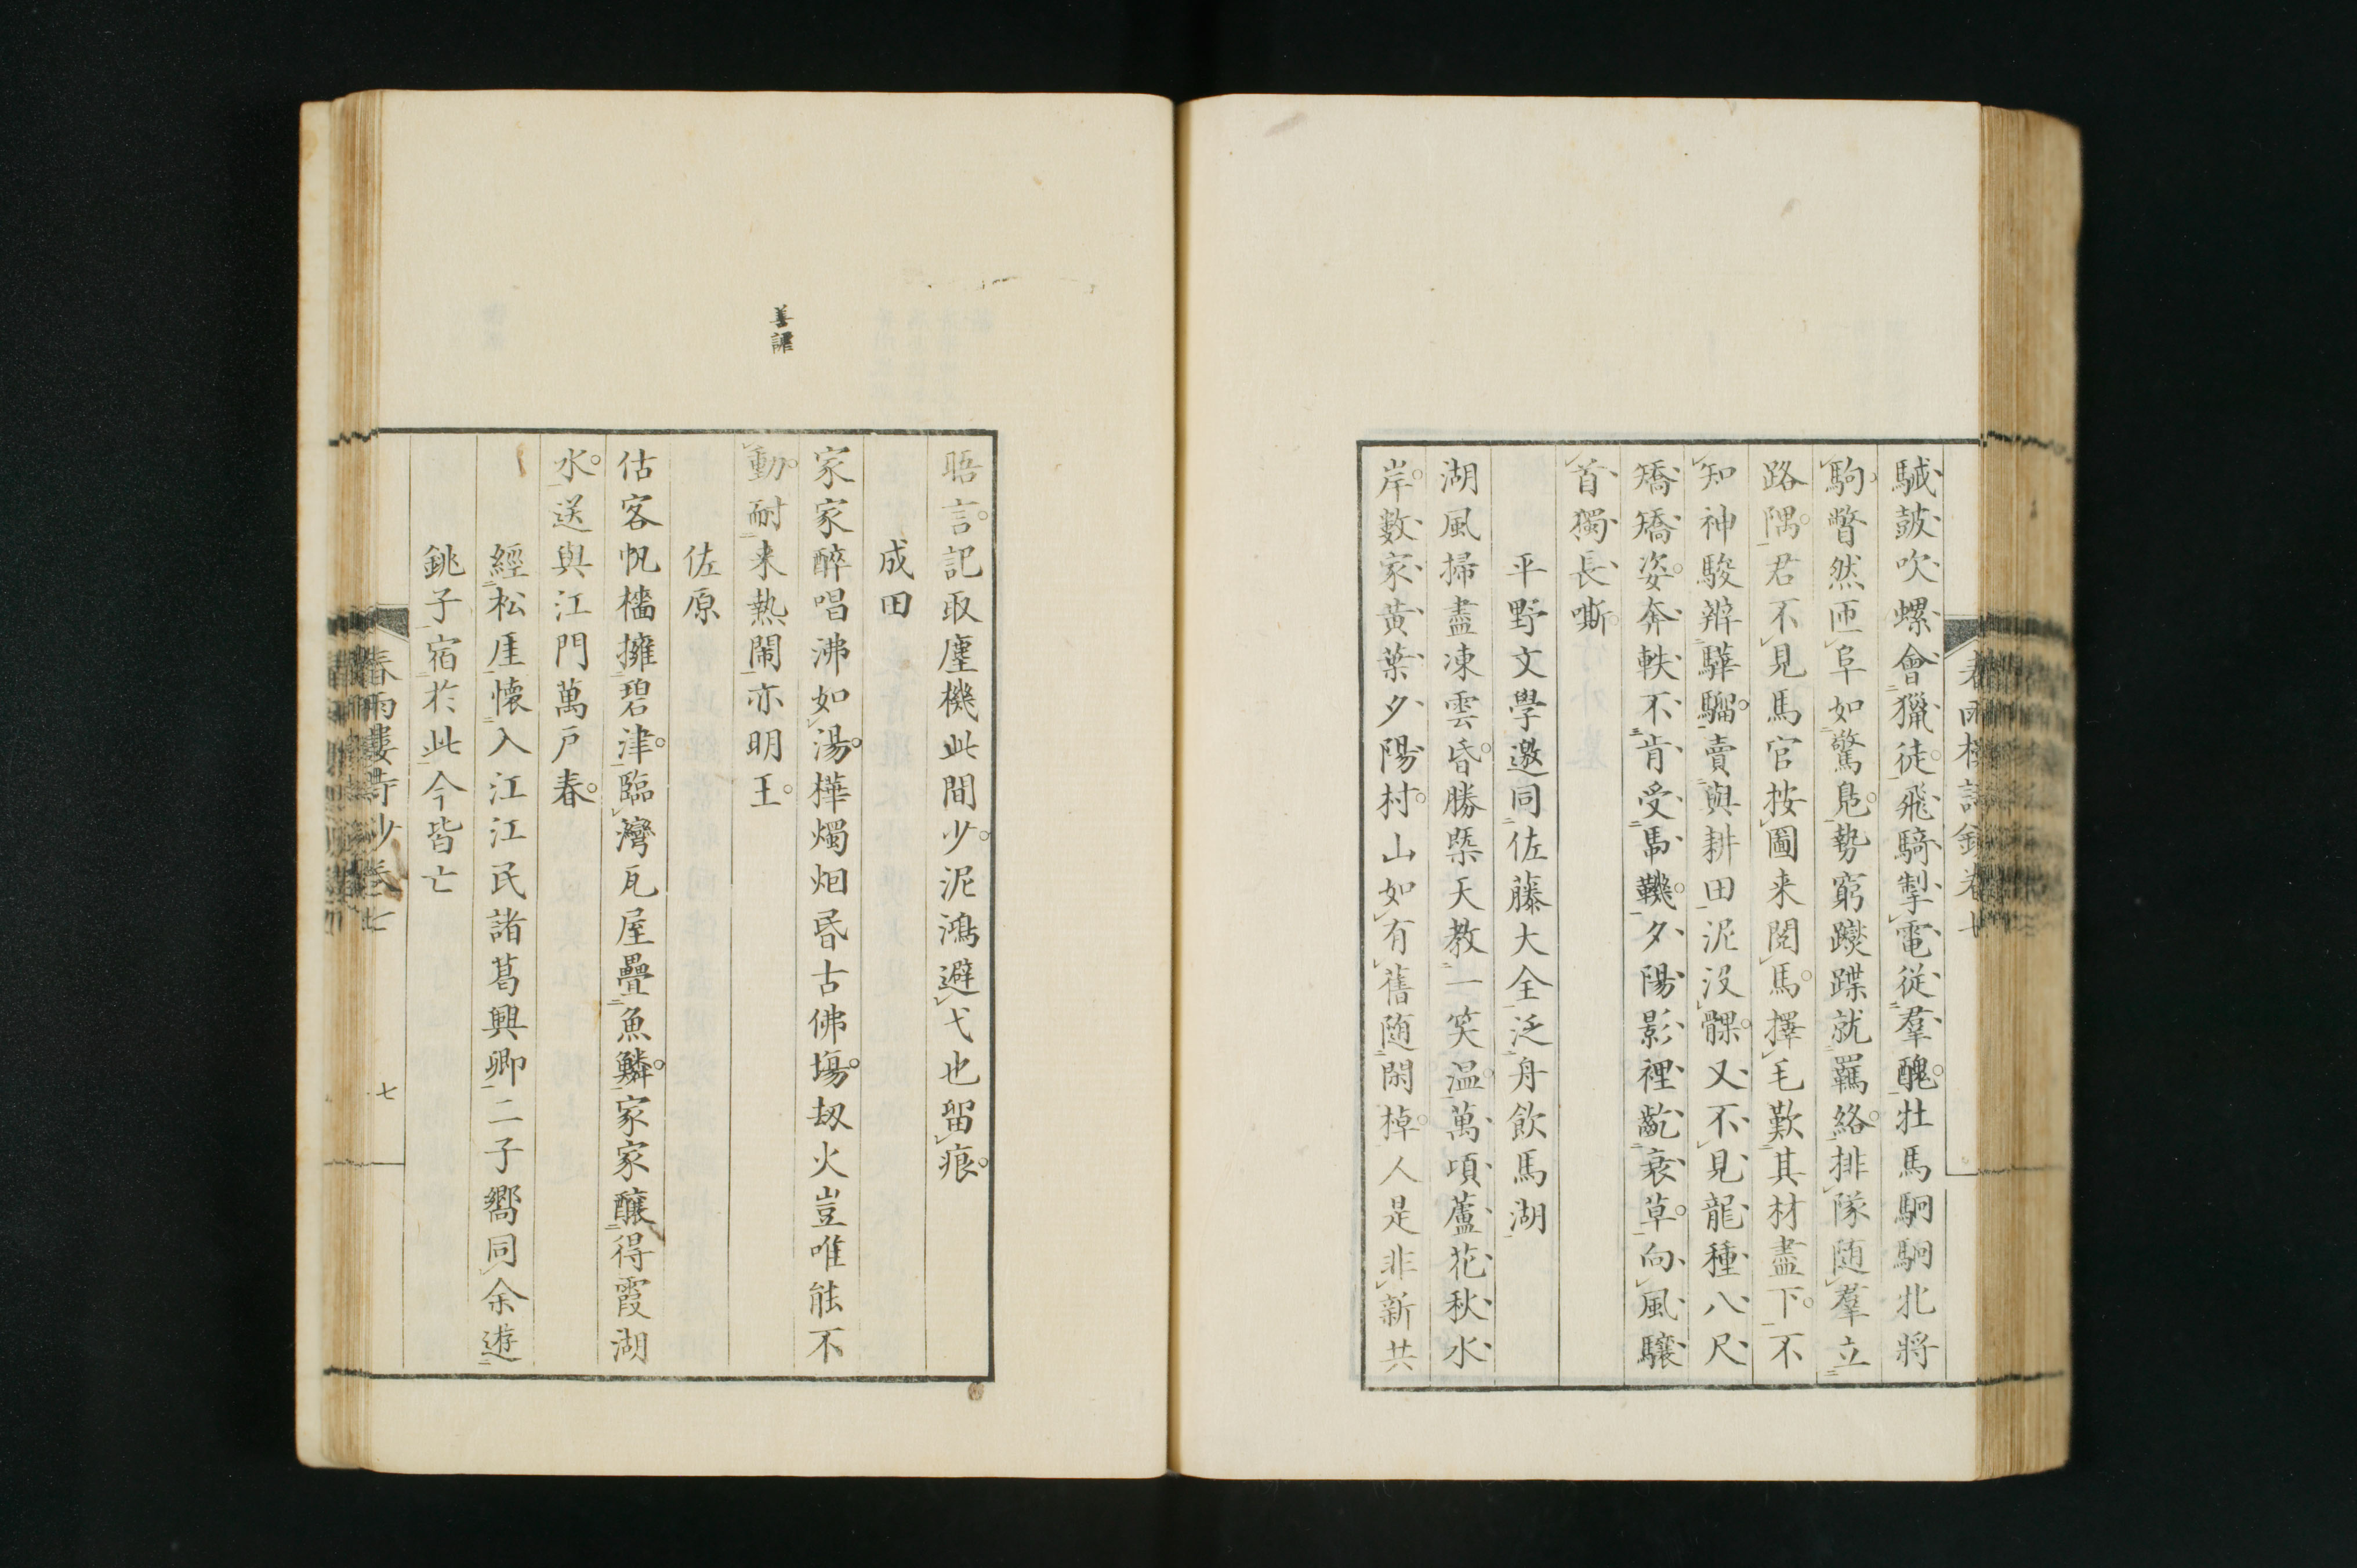 駴鼓吹螺會獵徒飛騎掣電從羣醜牡馬駉駉北將
駒瞥然匝阜如驚鳧勢窮躞蹀就羈絡排隊随羣立
路隅君不見馬官按圖来閲馬擇毛歎其材盡下不
知神駿辨驊騮賣與耕田泥没髁又不見龍種八尺
矯矯姿奔軼不肯受馽鞿夕陽影裡齕衰草向風驤
首獨長嘶
平野文學邀同佐藤大全泛舟飲馬湖
湖風掃盡凍雲昏勝槩天教一笑温萬頃蘆花秋水
岸數家黄葉夕陽村山如有舊随閑棹人是非新共
晤言記取塵機此間少泥鴻避弋也留痕
成田
家家醉唱沸如湯樺燭炧昏古佛塲刼火豈唯能不
動耐来熱閙亦明王
善謔
佐原
估客帆檣擁碧津臨灣瓦屋疊魚鱗家家釀得霞湖
水送與江門萬戸春
經松厓懷入江江民諸葛興卿二子嚮同余遊
銚子宿於此今皆亡
春雨樓詩鈔卷七
七